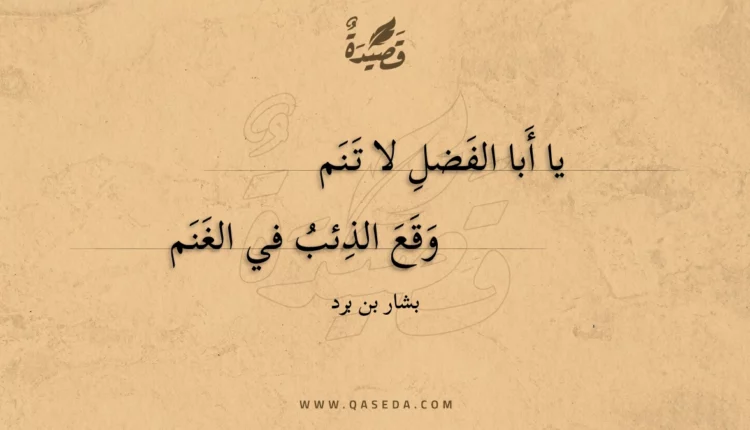 قَصِيْدَةٌ
يا أَبا الفَضلِ لا تَنَم
وَقَعَ الذِئبُ في الغَنَم
بشار بن برد
WWW.QASEDA.COM